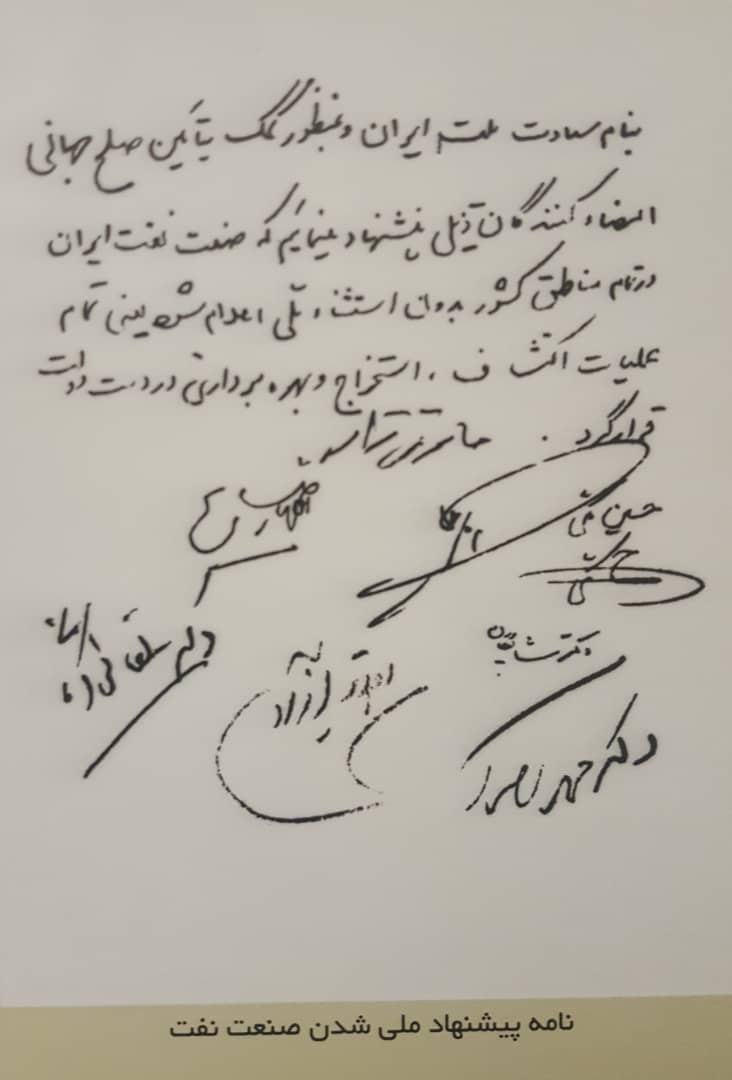 بنام سعادت ملت ایران و بمنظور کمک بتأمین صلح جهانی
امضاء کنندگان ذیل پیشنهاد مینمائیم که صنعت نفت ایران
در تمام مناطق کشور بدون استثناء ملی اعلام شود یعنی تمام
عملیات اکتشاف ، استخراج و بهره برداری در دست دولت
قرار گیرد .
حسین مکی
دکتر شایگان
نامه پیشنهاد ملی شدن صنعت نفت